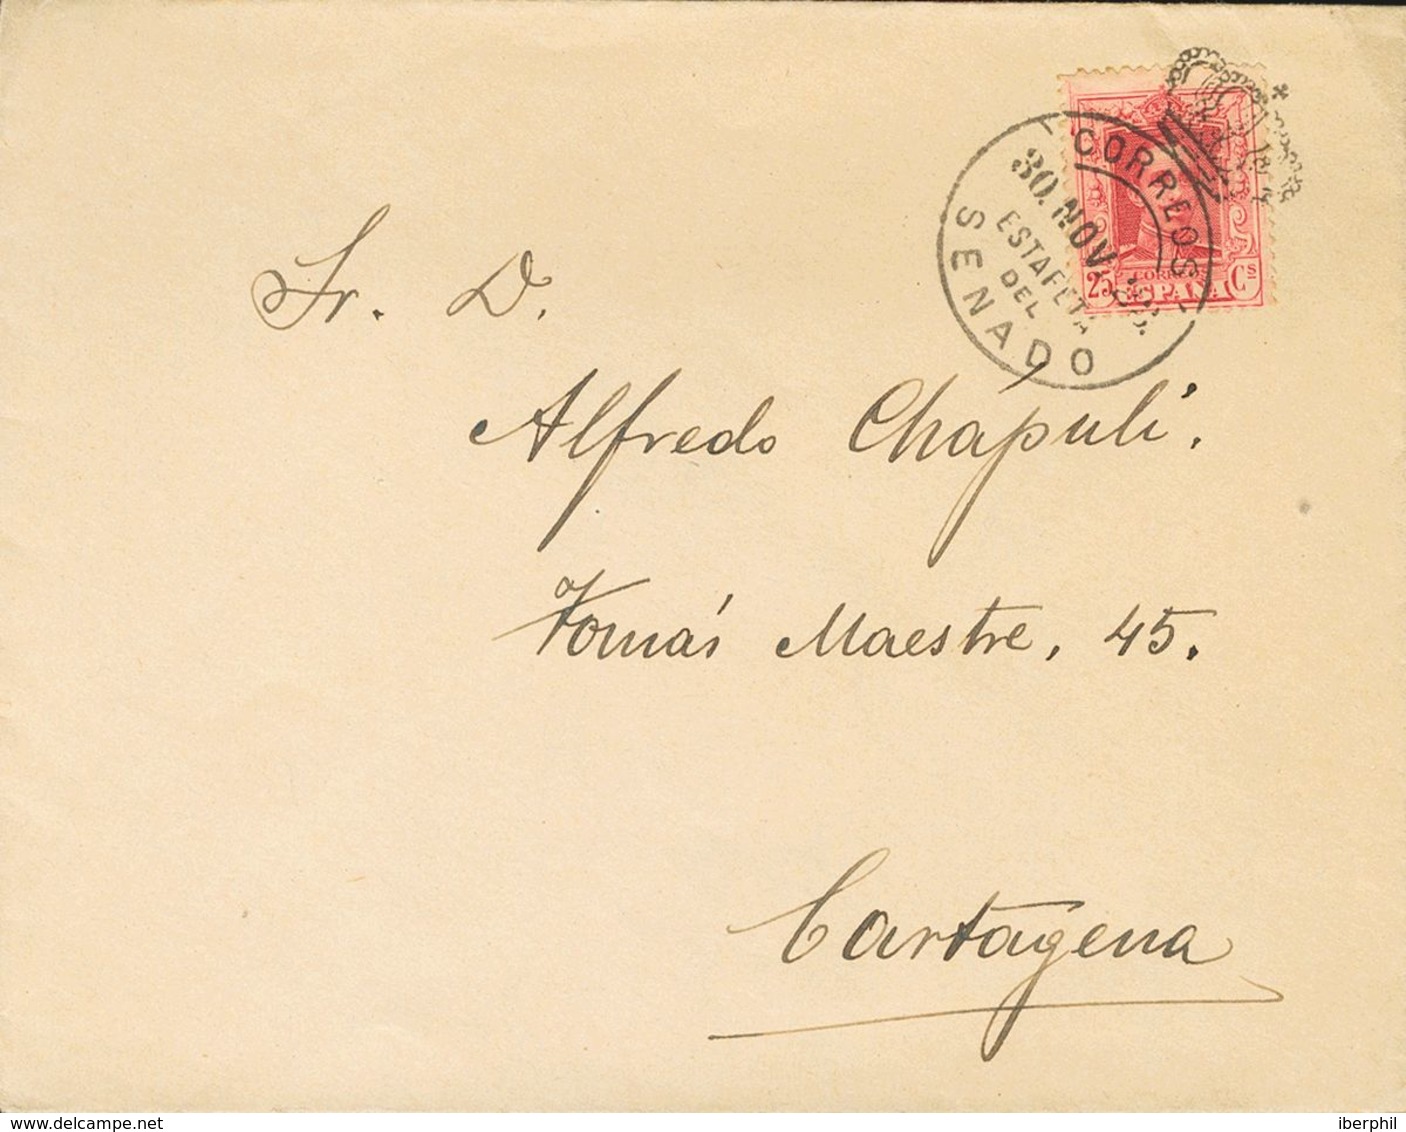 CORREOS
30. NOV.
ESTAFETA
DEL
SENADO
CORREOS
ESPAÑA
25 Cs
Sr. D.
Alfredo Chápuli.
Tomás Maestre, 45.
Cartagena
www.delcampe.net
iberphil